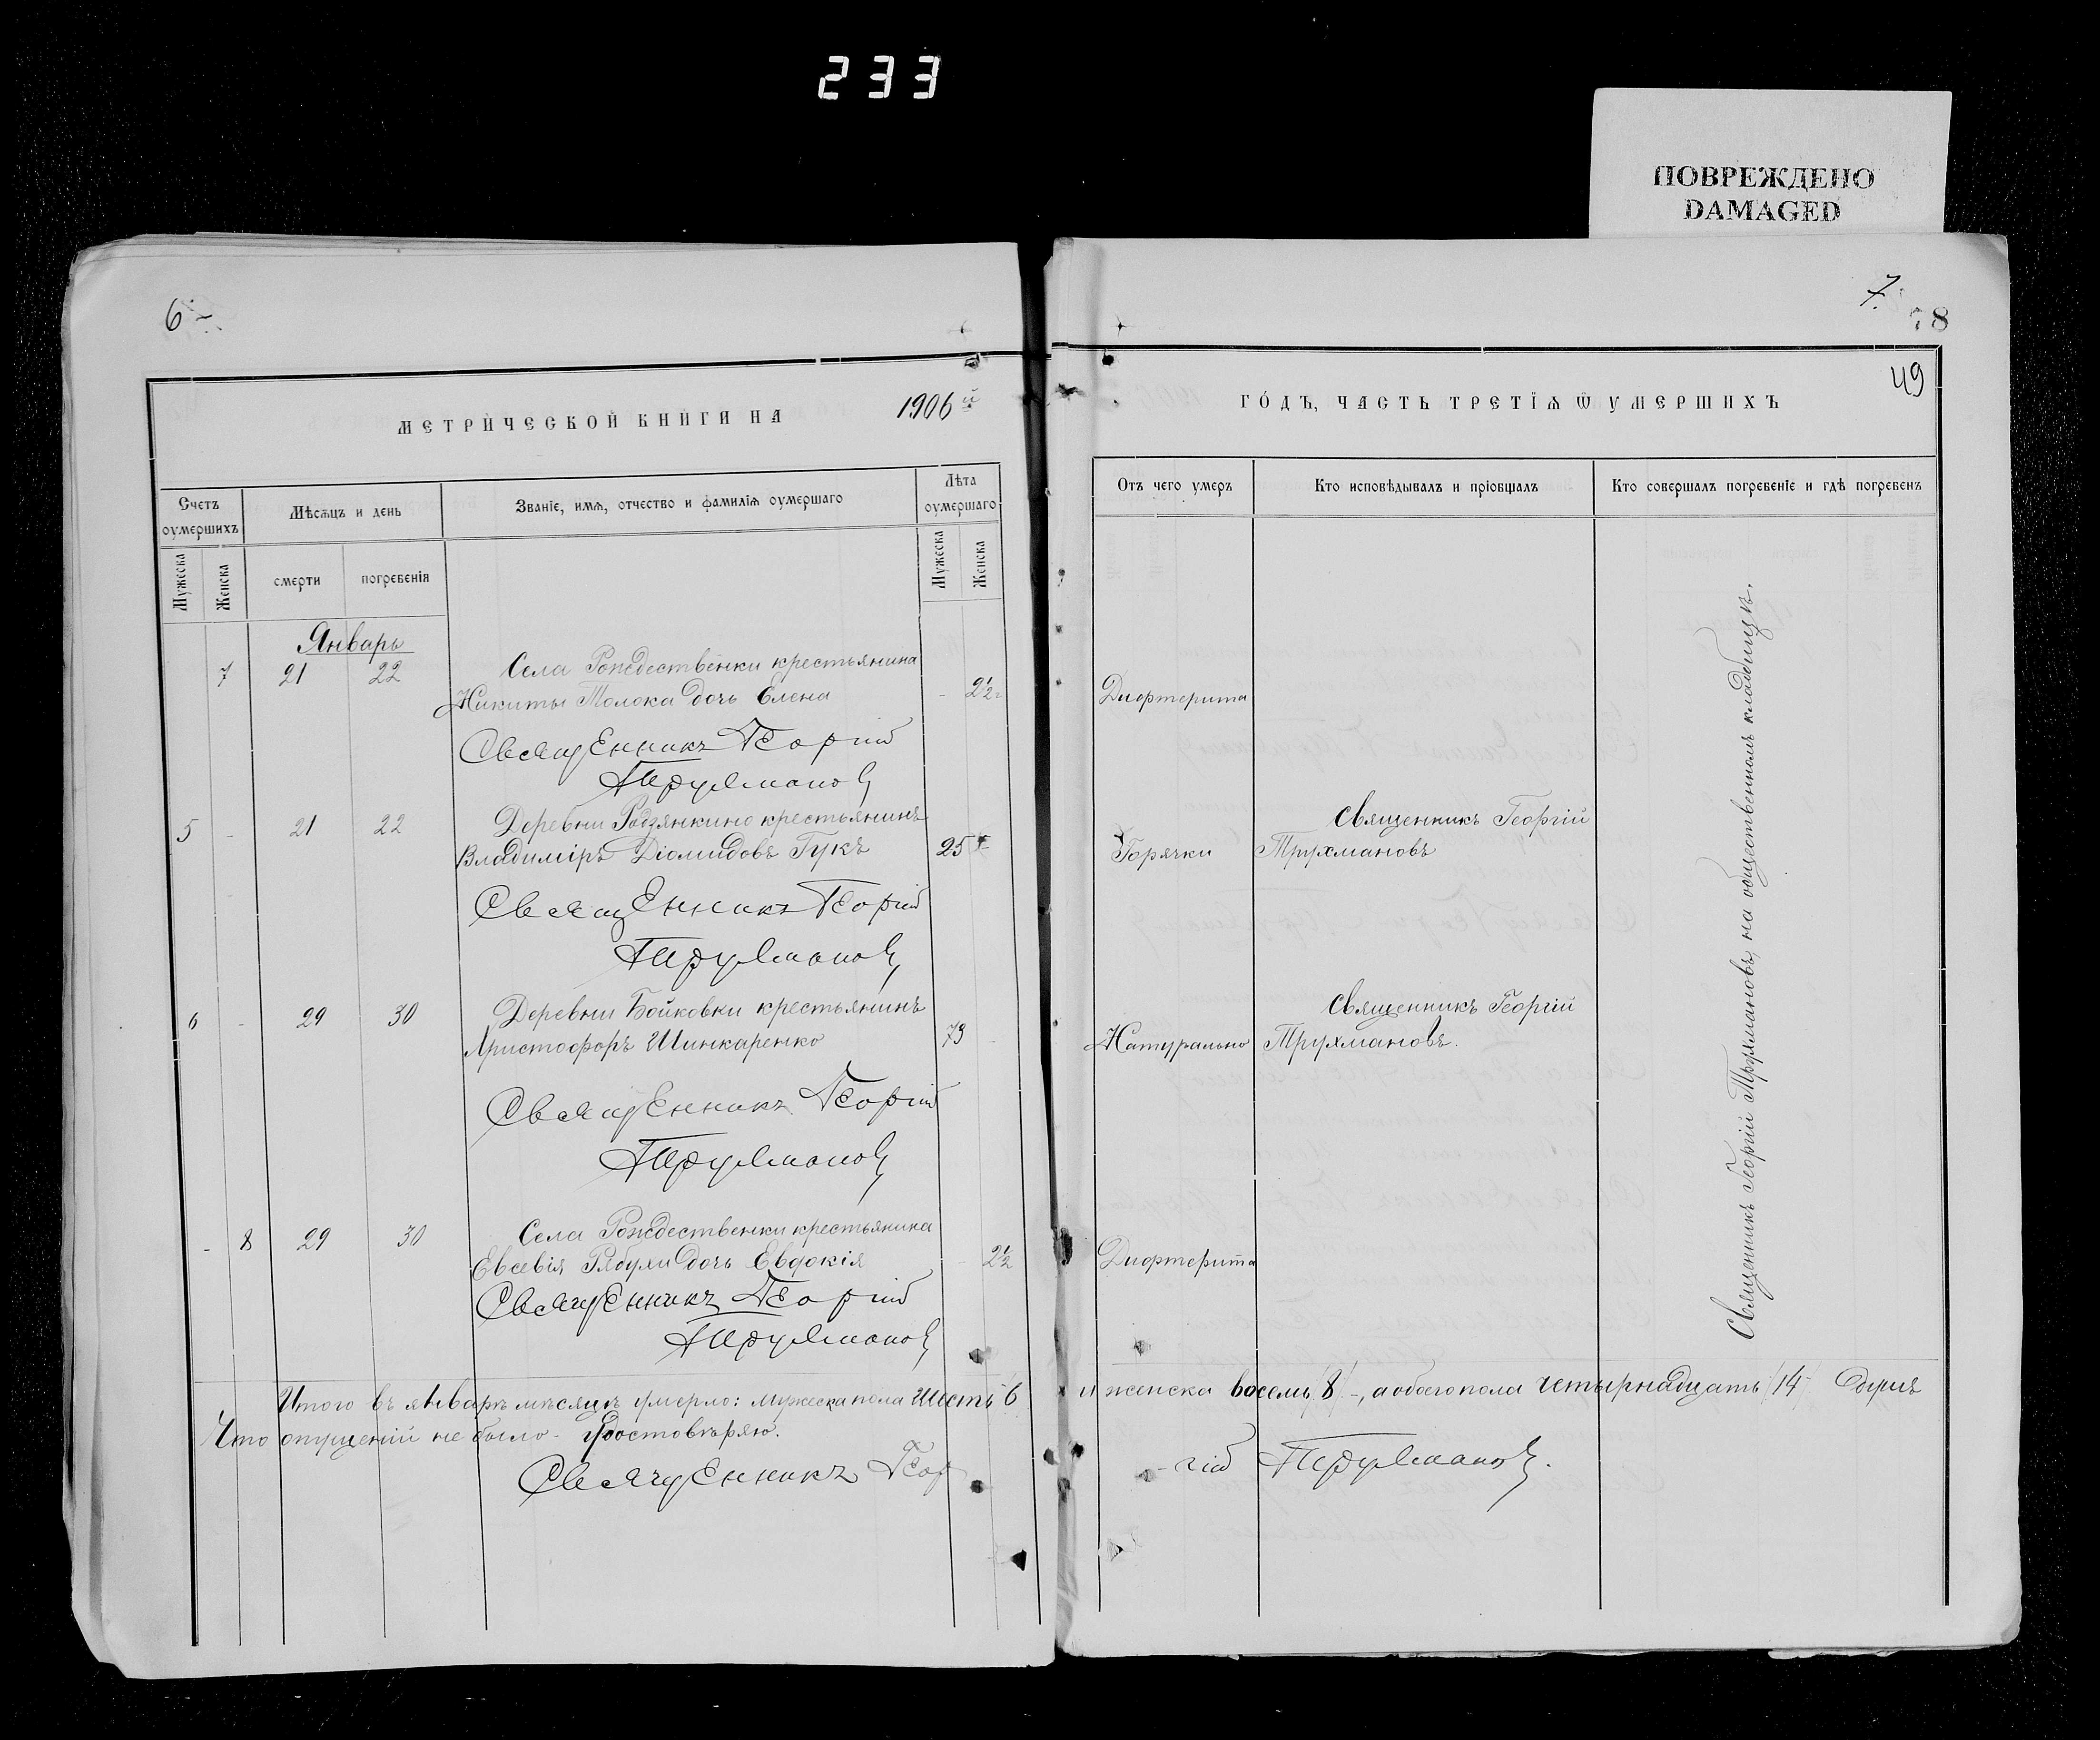 233
ПОВРЕЖДЕНО
DAMAGED
6
МЕТРИЧЕСКОЙ КНИГИ НА 1906й
Счетъ оумершихъ
Мѣсяцъ и день
Званіе, имя, отчество и фамилія оумершаго
Лѣта оумершаго
Мужеска
Женска
смерти
погребенія
Мужеска
Женска
Январь
7 21 22 Села Рождественки крестьянина
Никиты Молока дочь Елена - 2½
Священникъ Георгій
Трухмановъ
5 - 21 22 Деревни Родзянкино крестьянинъ
Владиміръ Діомидовъ Гукъ 25
Священникъ Георгій
Трухмановъ
6 - 29 30 Деревни Бойковки крестьянинъ
Христофоръ Шинкаренко 73 -
Священникъ Георгій
Трухмановъ
- 8 29 30 Села Рождественки крестьянина
Евсевія Рябухи дочь Евдокія - 2½
Священникъ Георгій
Трухмановъ
Итого въ Январѣ мѣсяцѣ умерло: мужеска пола шесть 6
Что опущеній не было - удостовѣряю.
Священникъ Геор
7.
78
49
ГОДЪ, ЧАСТЬ ТРЕТІЯ Ѿ УМЕРШИХЪ
Отъ чего умеръ
Кто исповѣдывалъ и пріобщалъ
Кто совершалъ погребеніе и гдѣ погребенъ
Дифтерита
Священникъ Георгій
Горячки Трухмановъ
Священникъ Георгій
Натурально Трухмановъ.
Дифтерита
Священникъ Георгій Трухмановъ, на общественномъ кладбищѣ.
и женска восемь /8/ -, а обоего пола четырнадцать /14/ душъ
- гій Трухмановъ.